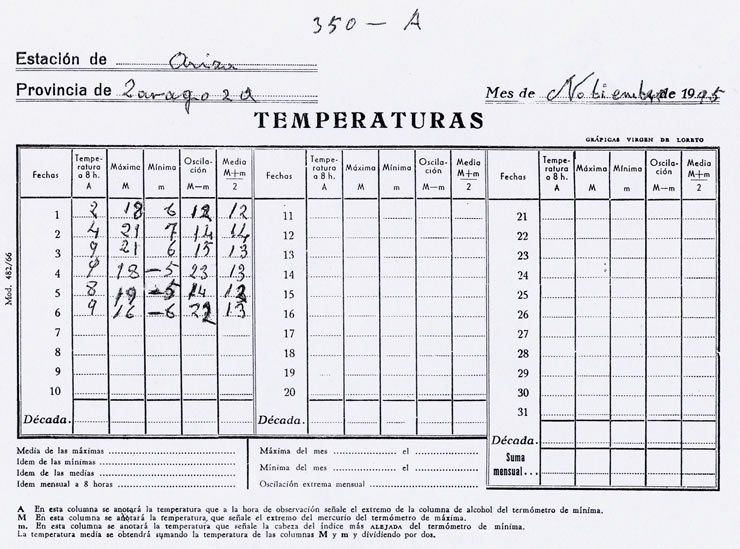 350 - A
Estación de Ariza
Provincia de Zaragoza
Mes de Nobiembre de 1995
TEMPERATURAS
GRÁFICAS VIRGEN DE LORETO
Fechas Tempe-ratura a 8 h. A Máxima M Mínima m Oscila-ción M—m Media M+m 2
1 2 18 6 12 12
2 4 21 7 14 14
3 9 21 6 15 13
4 9 18 -5 23 13
5 8 19 -5 14 12
6 9 16 -6 22 13
7
8
9
10
Década.
Fechas Tempe-ratura a 8 h. A Máxima M Mínima m Oscila-ción M—m Media M+m 2
11
12
13
14
15
16
17
18
19
20
Década.
Fechas Tempe-ratura a 8 h. A Máxima M Mínima m Oscila-ción M—m Media M+m 2
21
22
23
24
25
26
27
28
29
30
31
Década.
Suma mensual...
Mod. 482/66
Media de las máximas
Idem de las mínimas
Idem de las medias
Idem mensual a 8 horas
Máxima del mes el
Mínima del mes el
Oscilación extrema mensual
A En esta columna se anotará la temperatura que a la hora de observación señale el extremo de la columna de alcohol del termómetro de mínima.
M En esta columna se anotará la temperatura, que señale el extremo del mercurio del termómetro de máxima.
m. En esta columna se anotará la temperatura que señale la cabeza del índice más ALEJADA del termómetro de mínima.
La temperatura media se obtendrá sumando la temperatura de las columnas M y m y dividiendo por dos.